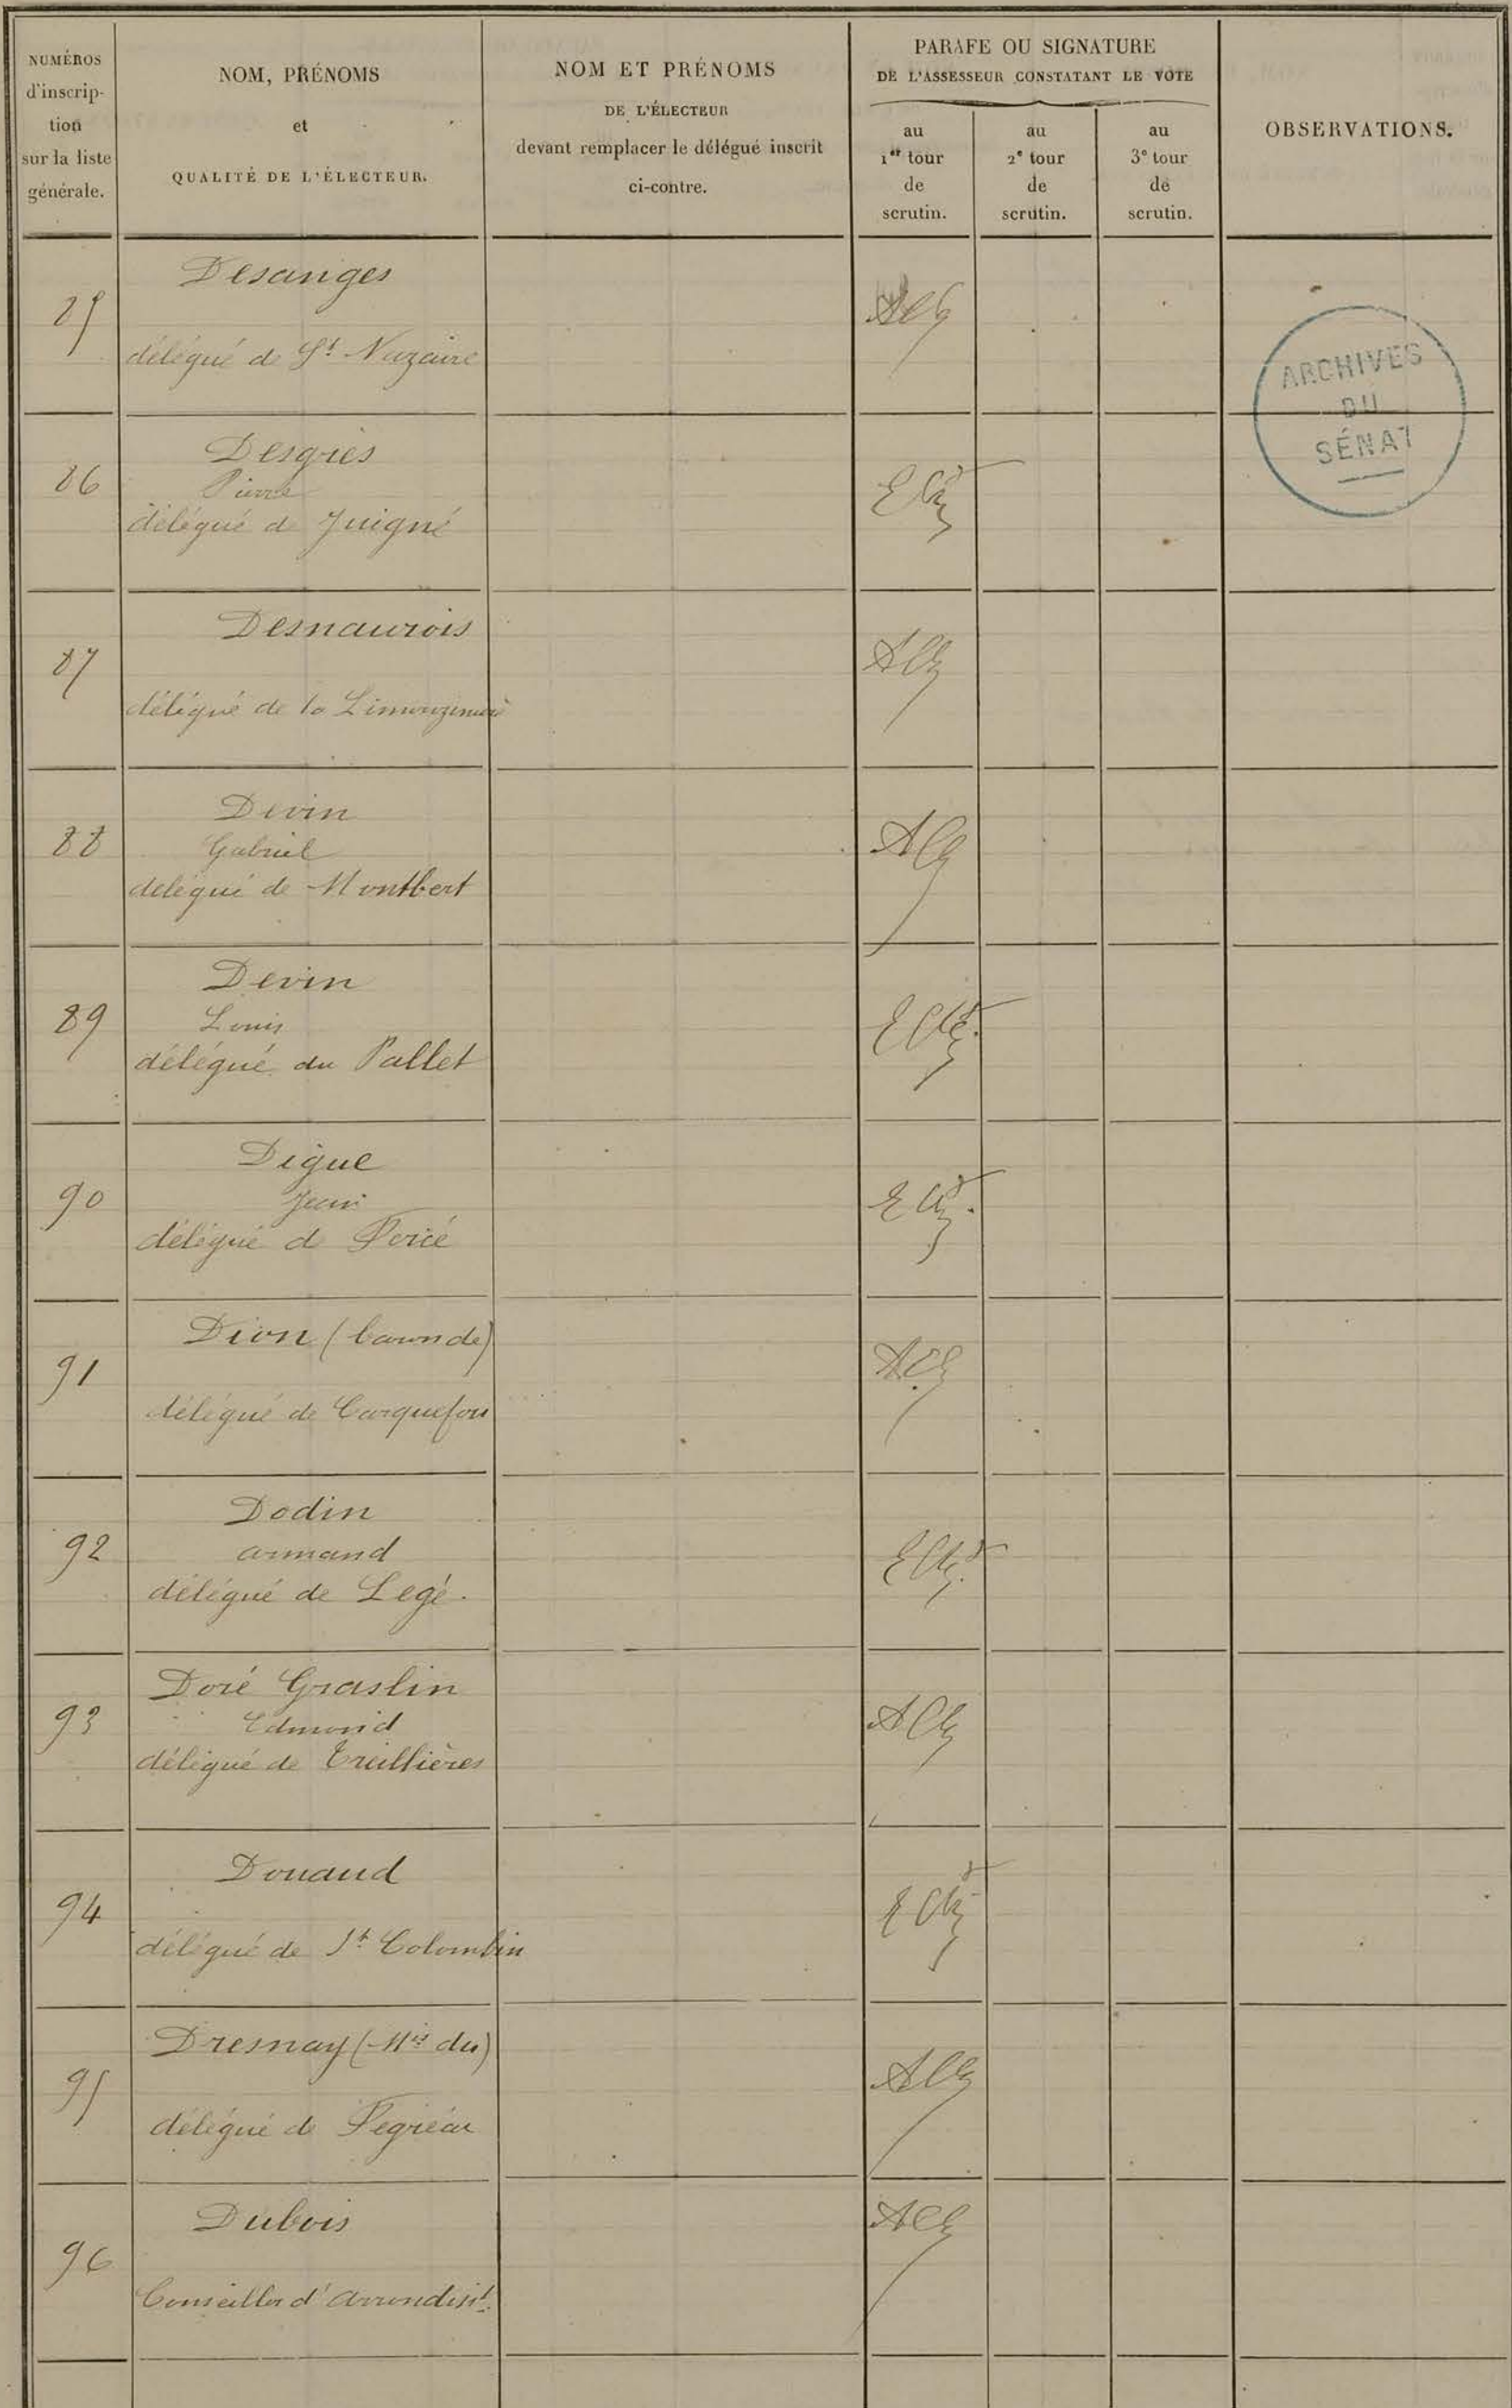 NUMÉROS
d'inscrip-
tion
sur la liste
générale.
NOM, PRÉNOMS
et
QUALITÉ DE L'ÉLECTEUR.
NOM ET PRÉNOMS
DE L'ÉLECTEUR
devant remplacer le délégué inscrit
ci-contre.
PARAFE OU SIGNATURE
DE L'ASSESSEUR CONSTATANT LE VOTE
au
1er tour
de
scrutin.
au
2e tour
de
scrutin.
au
3e tour
de
scrutin.
OBSERVATIONS.
85
Desanges
délégué de St Nazaire
ARCHIVES
DU
SÉNAT
86
Desgrès
Pierre
délégué de Juigné
87
Desnaurois
délégué de la Limouzinière
88
Devin
Gabriel
délégué de Montbert
89
Devin
Louis
délégué du Pallet
90
Digue
Jean
délégué de Fercé
91
Dion (baron de)
délégué de Carquefou
92
Dodin
armand
délégué de Legé.
93
Doré Graslin
Edmond
délégué de Treillières
94
Douaud
délégué de St Colombin
95
Dresnay (Mis du)
délégué de Fégréac
96
Dubois
Conseiller d'arrondist.